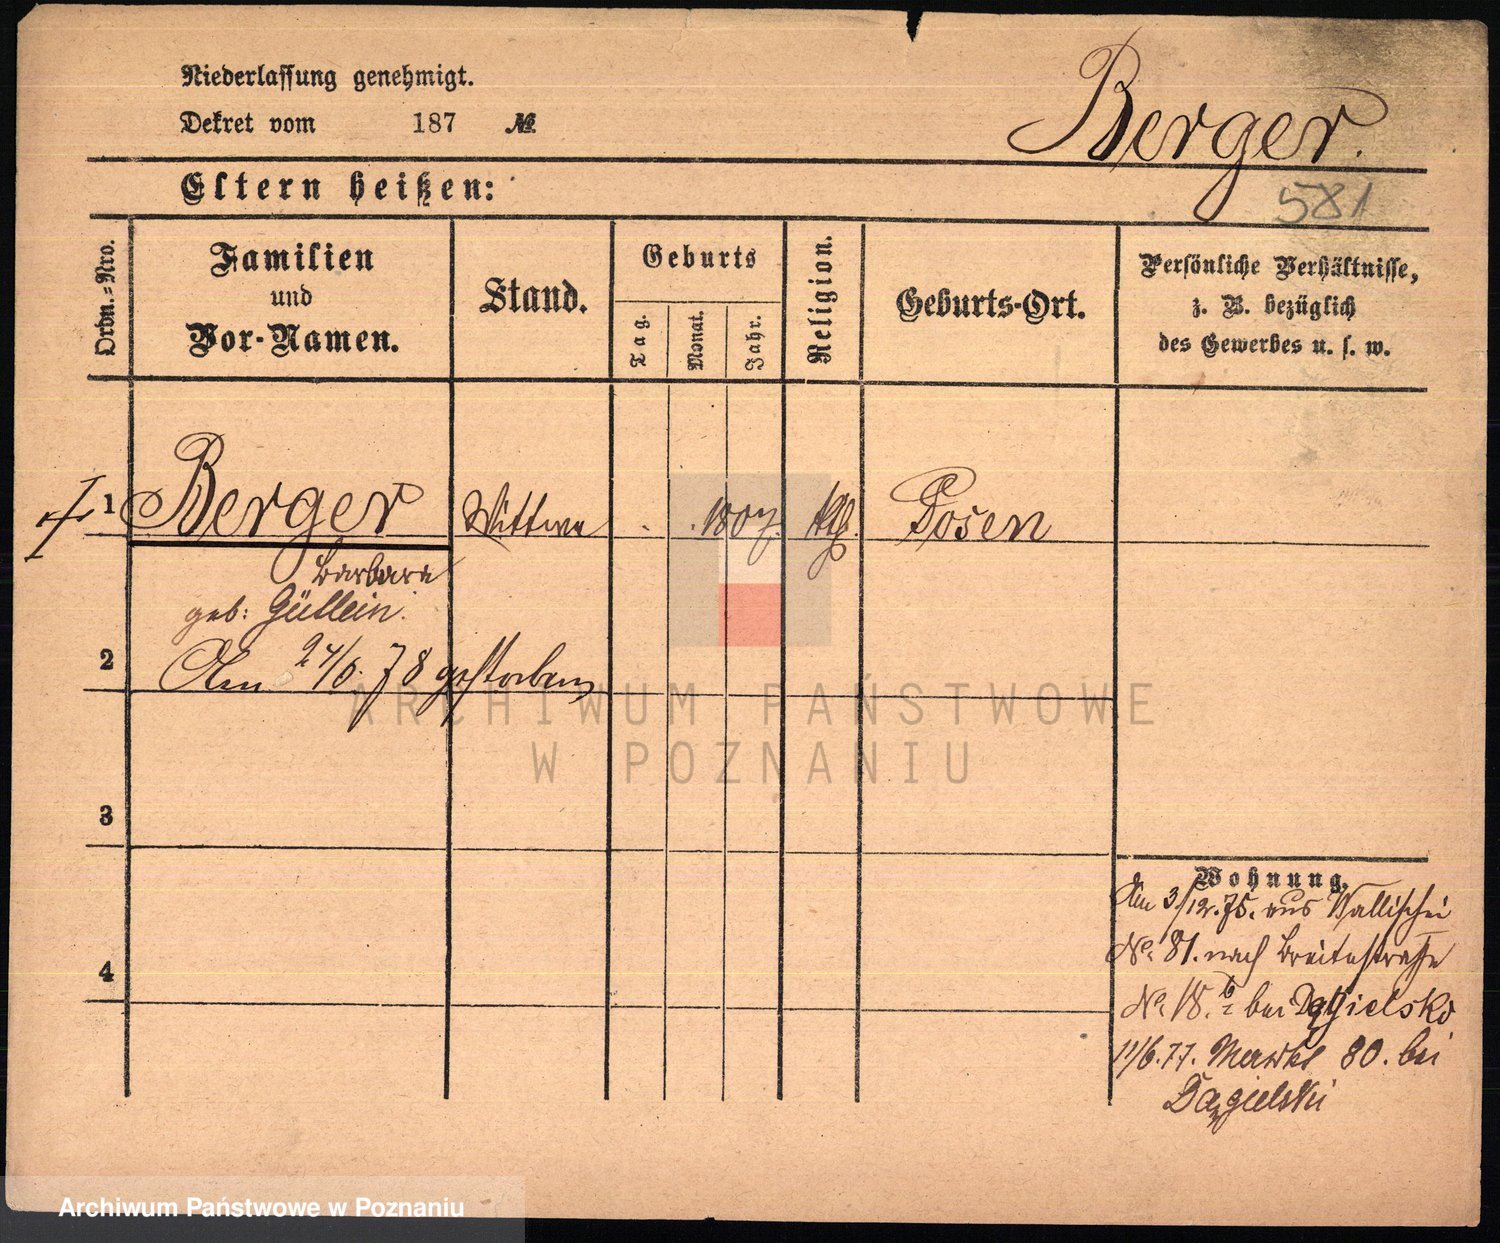 Niederlassung genehmigt.
Dekret vom 187 №
Berger.
581
Eltern heißen:
Ordn.-Nro.
Familien und Vor-Namen.
Stand.
Geburts
Tag.
Monat.
Jahr.
Religion.
Geburts-Ort.
Persönliche Verhältnisse,
z. B. bezüglich
des Gewerbes u. s. w.
1 Berger Wittwe 1807. Posen
Barbara
geb:
2 Am 24/6. 78 gestorben
3
4
Wohnung.
Am 3/12.75. aus Wallischei
No. 81. nach Breitestraße
No. 18. b bei
11/6.77. Markt 80. bei
Dągielski
ARCHIWUM PAŃSTWOWE
W POZNANIU
Archiwum Państwowe w Poznaniu